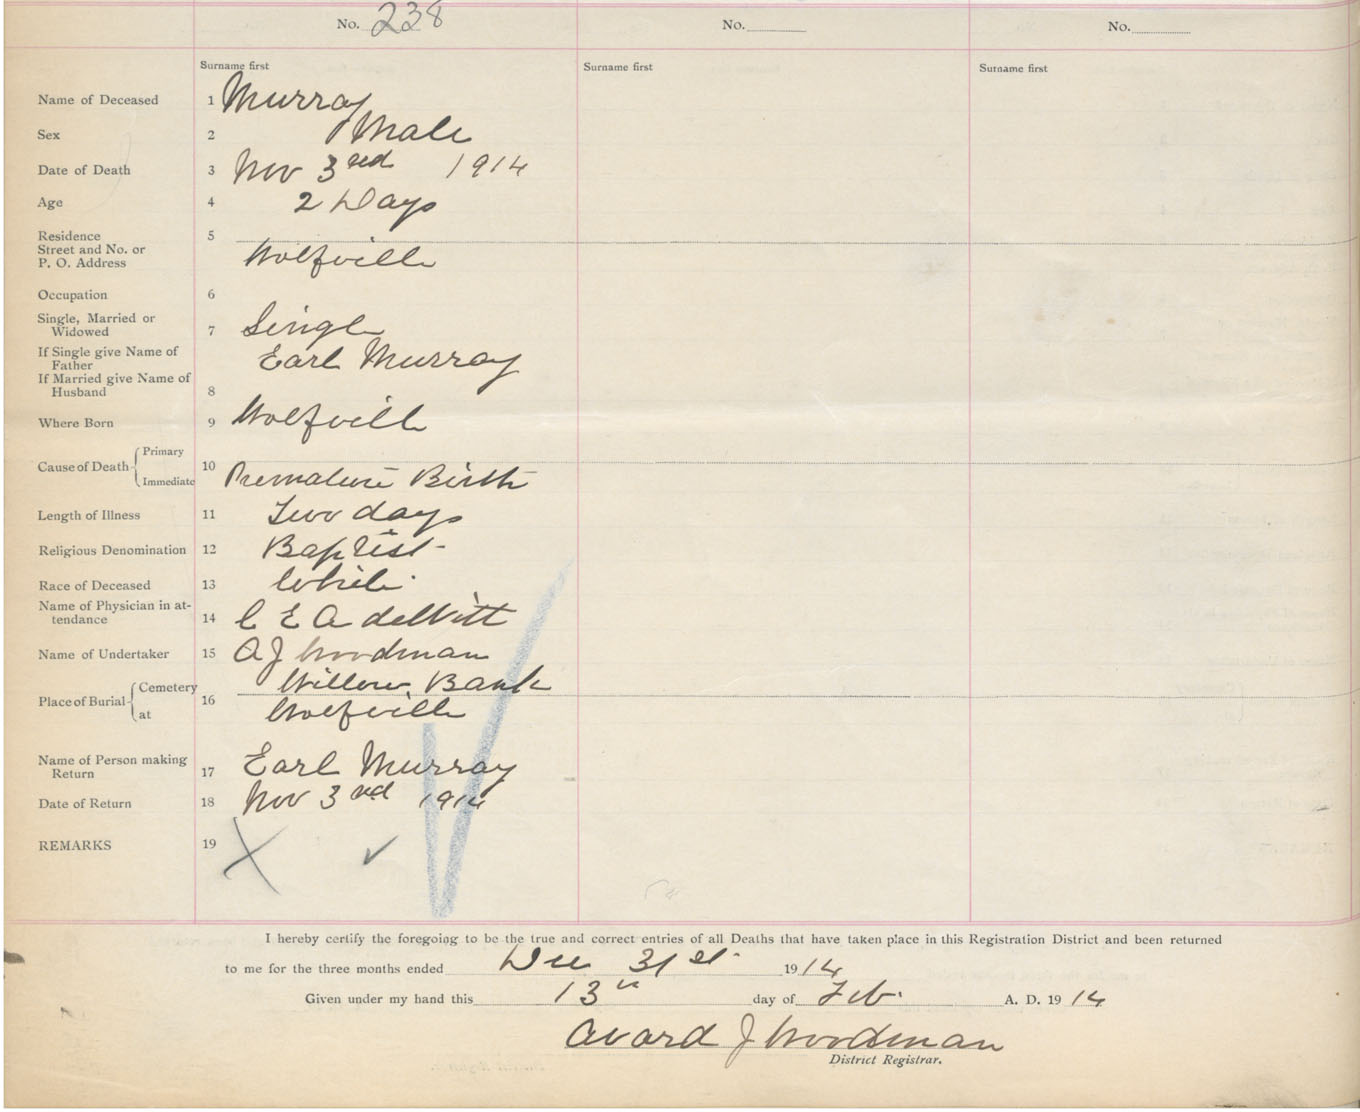 No. 238 No. No.
Surname first Surname first Surname first
Name of Deceased 1 Murray
Sex 2 Male
Date of Death 3 Nov 3rd 1914
Age 4 2 Days
Residence 5
Street and No. or
P. O. Address Wolfville
Occupation 6
Single, Married or
Widowed 7 Single
If Single give Name of
Father Earl Murray
If Married give Name of
Husband 8
Where Born 9 Wolfville
Primary
Cause of Death 10
Immediate Premature Birth
Length of Illness 11 Two days
Religious Denomination 12 Baptist
Race of Deceased 13 White
Name of Physician in at-
tendance 14 C E A deWitt
Name of Undertaker 15 A J Woodman
Cemetery Willow Bank
Place of Burial 16
at Wolfville
Name of Person making
Return 17 Earl Murray
Date of Return 18 Nov 3rd 1914
REMARKS 19
I hereby certify the foregoing to be the true and correct entries of all Deaths that have taken place in this Registration District and been returned
to me for the three months ended Dec 31st 1914
Given under my hand this 13th day of Feb. A. D. 1914
Avard J Woodman
District Registrar.